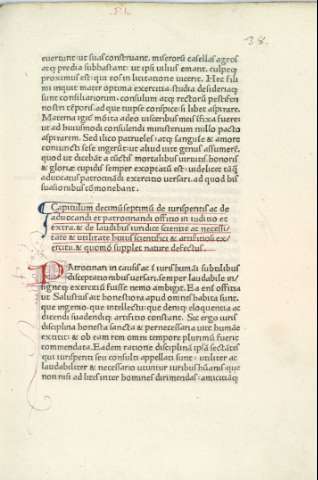 38.
euertunt: ut suas construant. miserorū casellas agros
atq; predia subhastant: ut ipsi uilius emant. culpeq;
proximus est: qui eos in licitatione uicerit. Hec fili
mi inquit mater optima exercitia studia desideriaq;
sunt consiliariorum. consulum atq; rectorū pestiferi
nostri tēporis. ad que turpe conspice si libet aspirare.
Materna igit mōita adeo uisceribus meis ifixa fueret
ut ad huiusmodi consulendi ministerium nullo pacto
aspirarem. Sed ilico patrueles: atq; sanguie & amore
coniuncti sese ingerūt: ut aliud uite genus assumerē.
quod ut dicebāt a cūctis mortalibus uirtutis. honoris
& glorie cupidis semper exoptatū est: uidelicet tāq̄
aduocatus patrocinādi exercitio uersari. ad quod his
suasionibus cōmonebant.
Capitulum decimūseptimū de iurisperitis ac de
aduocandi et patrocinandi officio in iuditio et
extra. & de laudibus iuridice scientie ac necessi
tate & utilitate huius scientifici & artificiosi ex/
ercitii. & quomō supplet nature defectus.
Patrocinari in causis ac ī iurs humāi subtilibus
disceptationibus uersari. semper laudabile in/
signeq; exercitiū fuisse nemo ambigit. Ea eni officia
ut Salustius ait honestiora apud omnis habita sunt.
que ingenio. que intellectu: que deniq; eloquentia ac
dicendi suadendiq; artificio constant. Sic ergo iuris
disciplina honesta sancta & pernecessaria uite humāe
extitit: & ob eam rem omni tempore plurimū fuerit
commendata. Eadem ratione disciplinā ipsā sectātes
qui iurisperiti seu consulti appellati sunt: utiliter ac
laudabiliter & necessario utuntur uiribus hūanis que
non nisi ad lites inter homines dirimendas: amicitiāq;